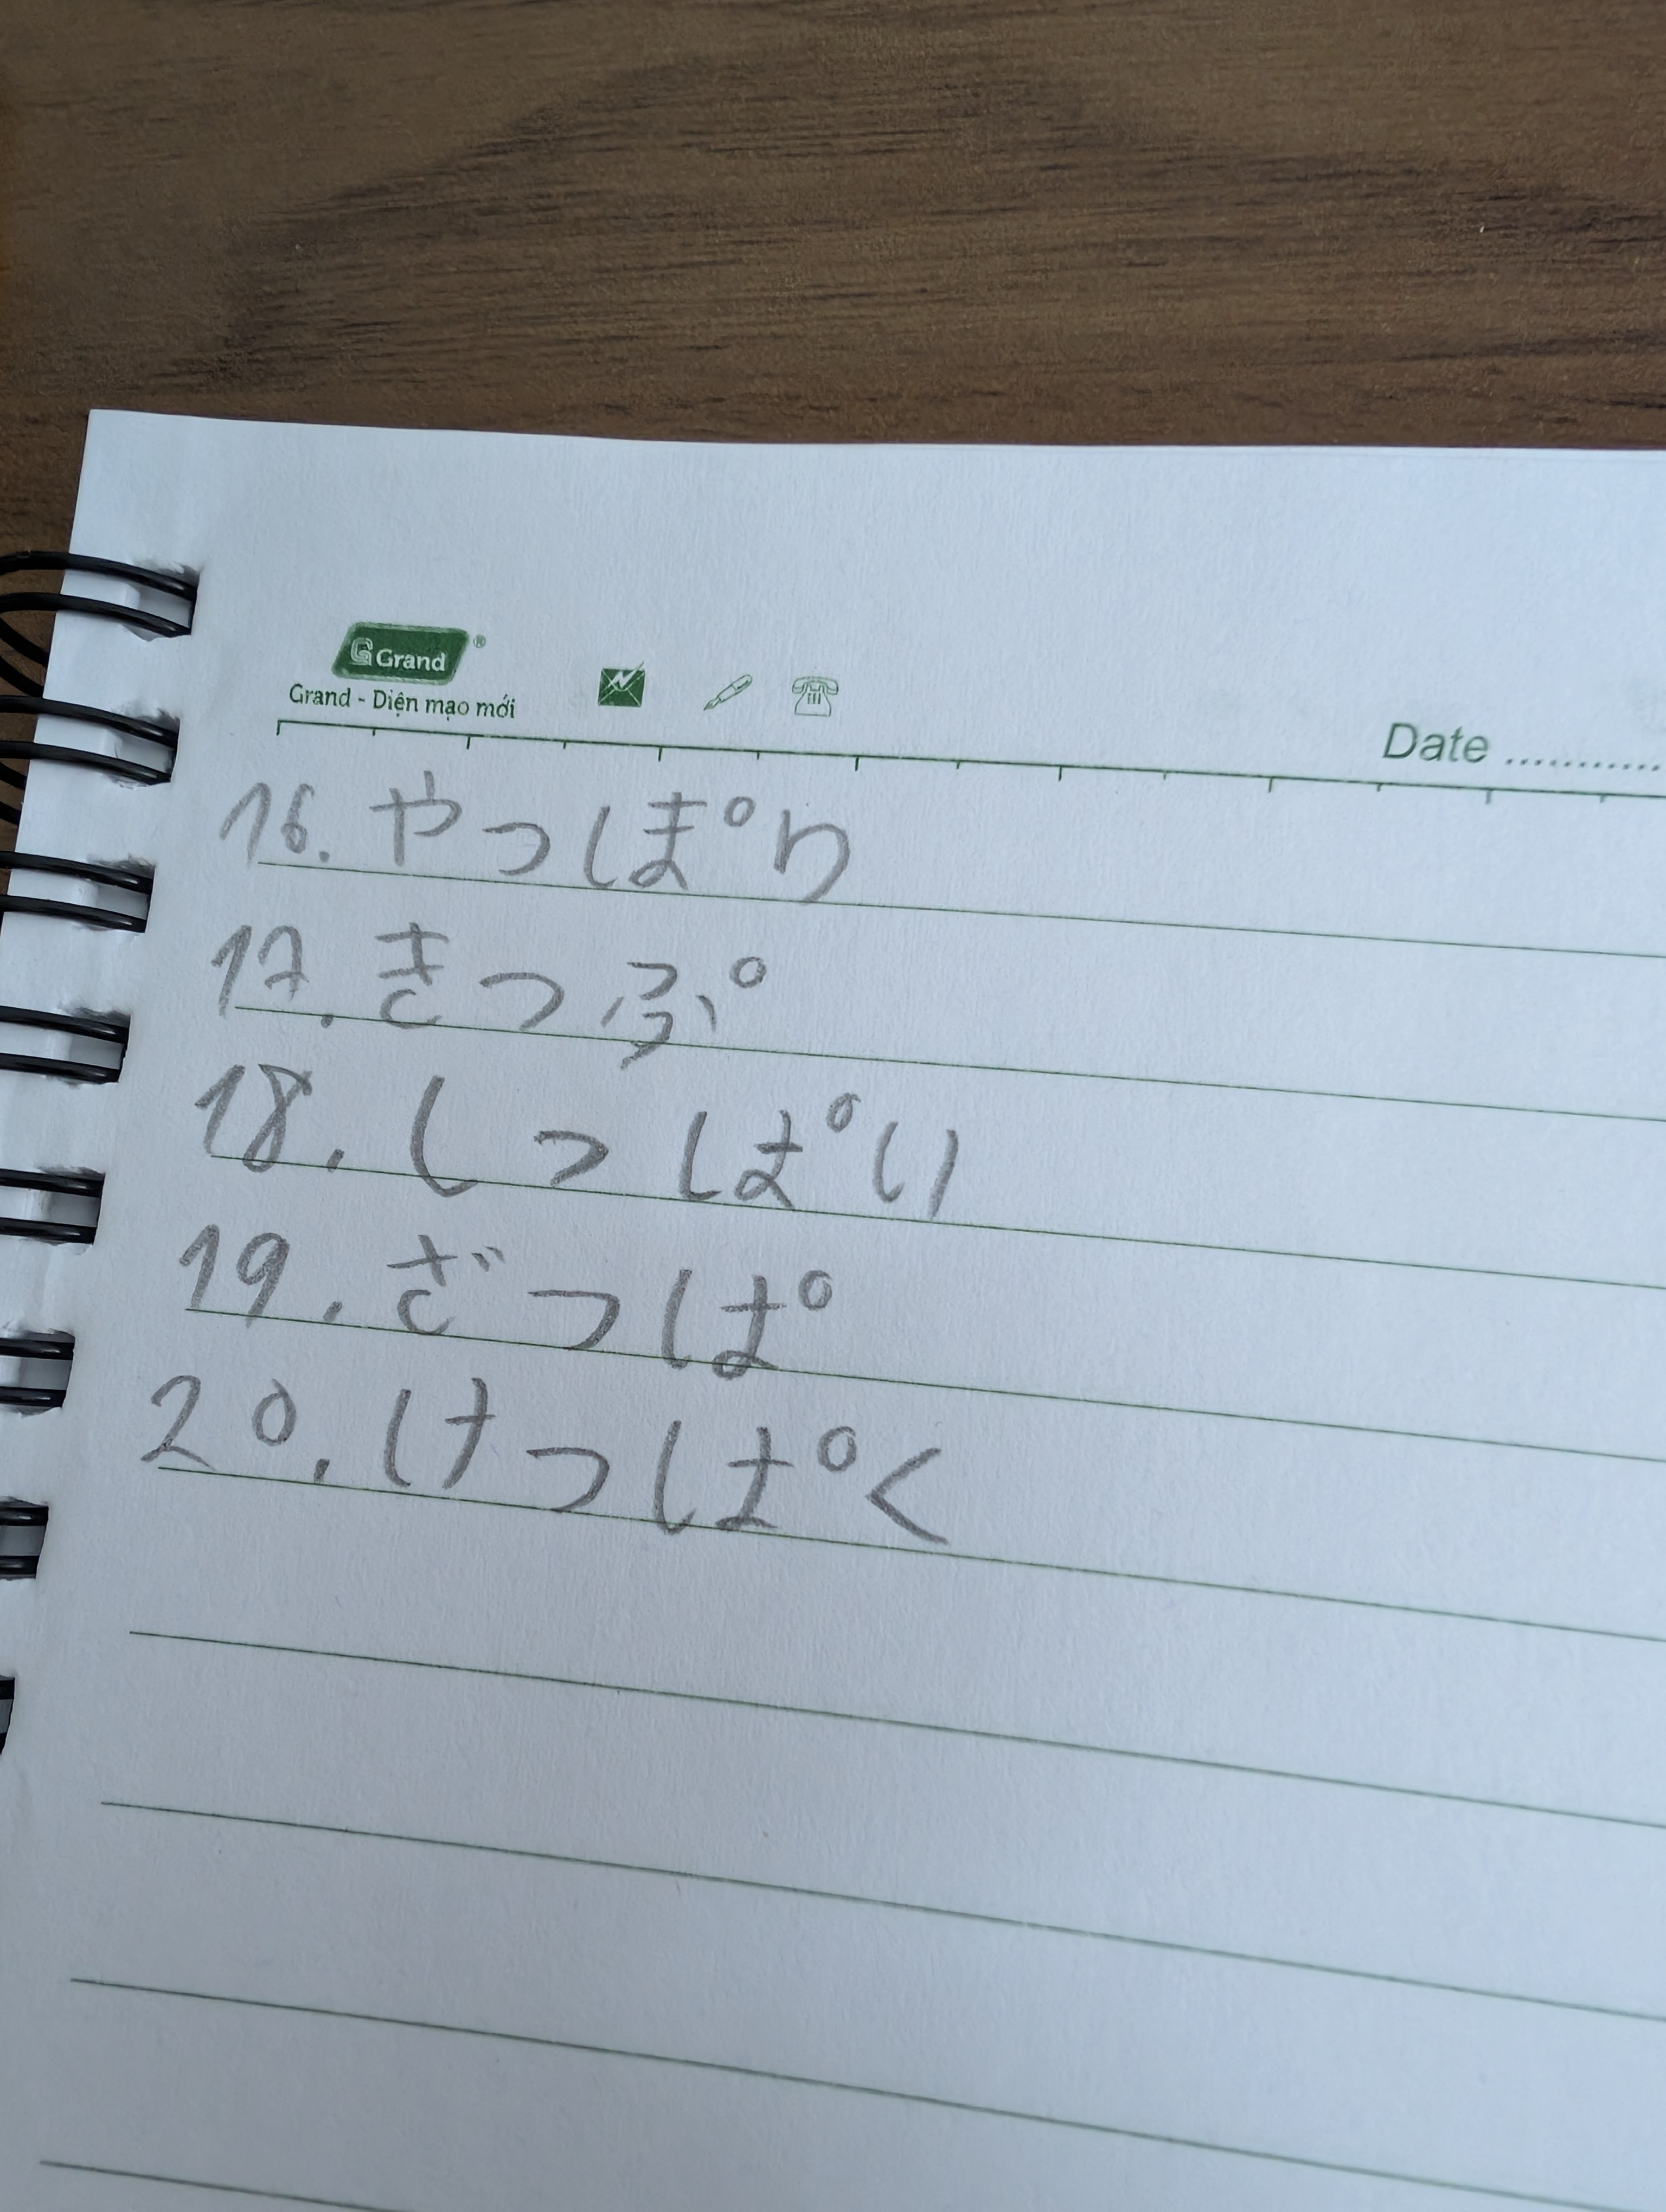 G Grand ®
Grand - Diện mạo mới
Date ............
16. やっぽり
17. きっぷ
18. しっぱい
19. ざっぱ
20. けっぱく